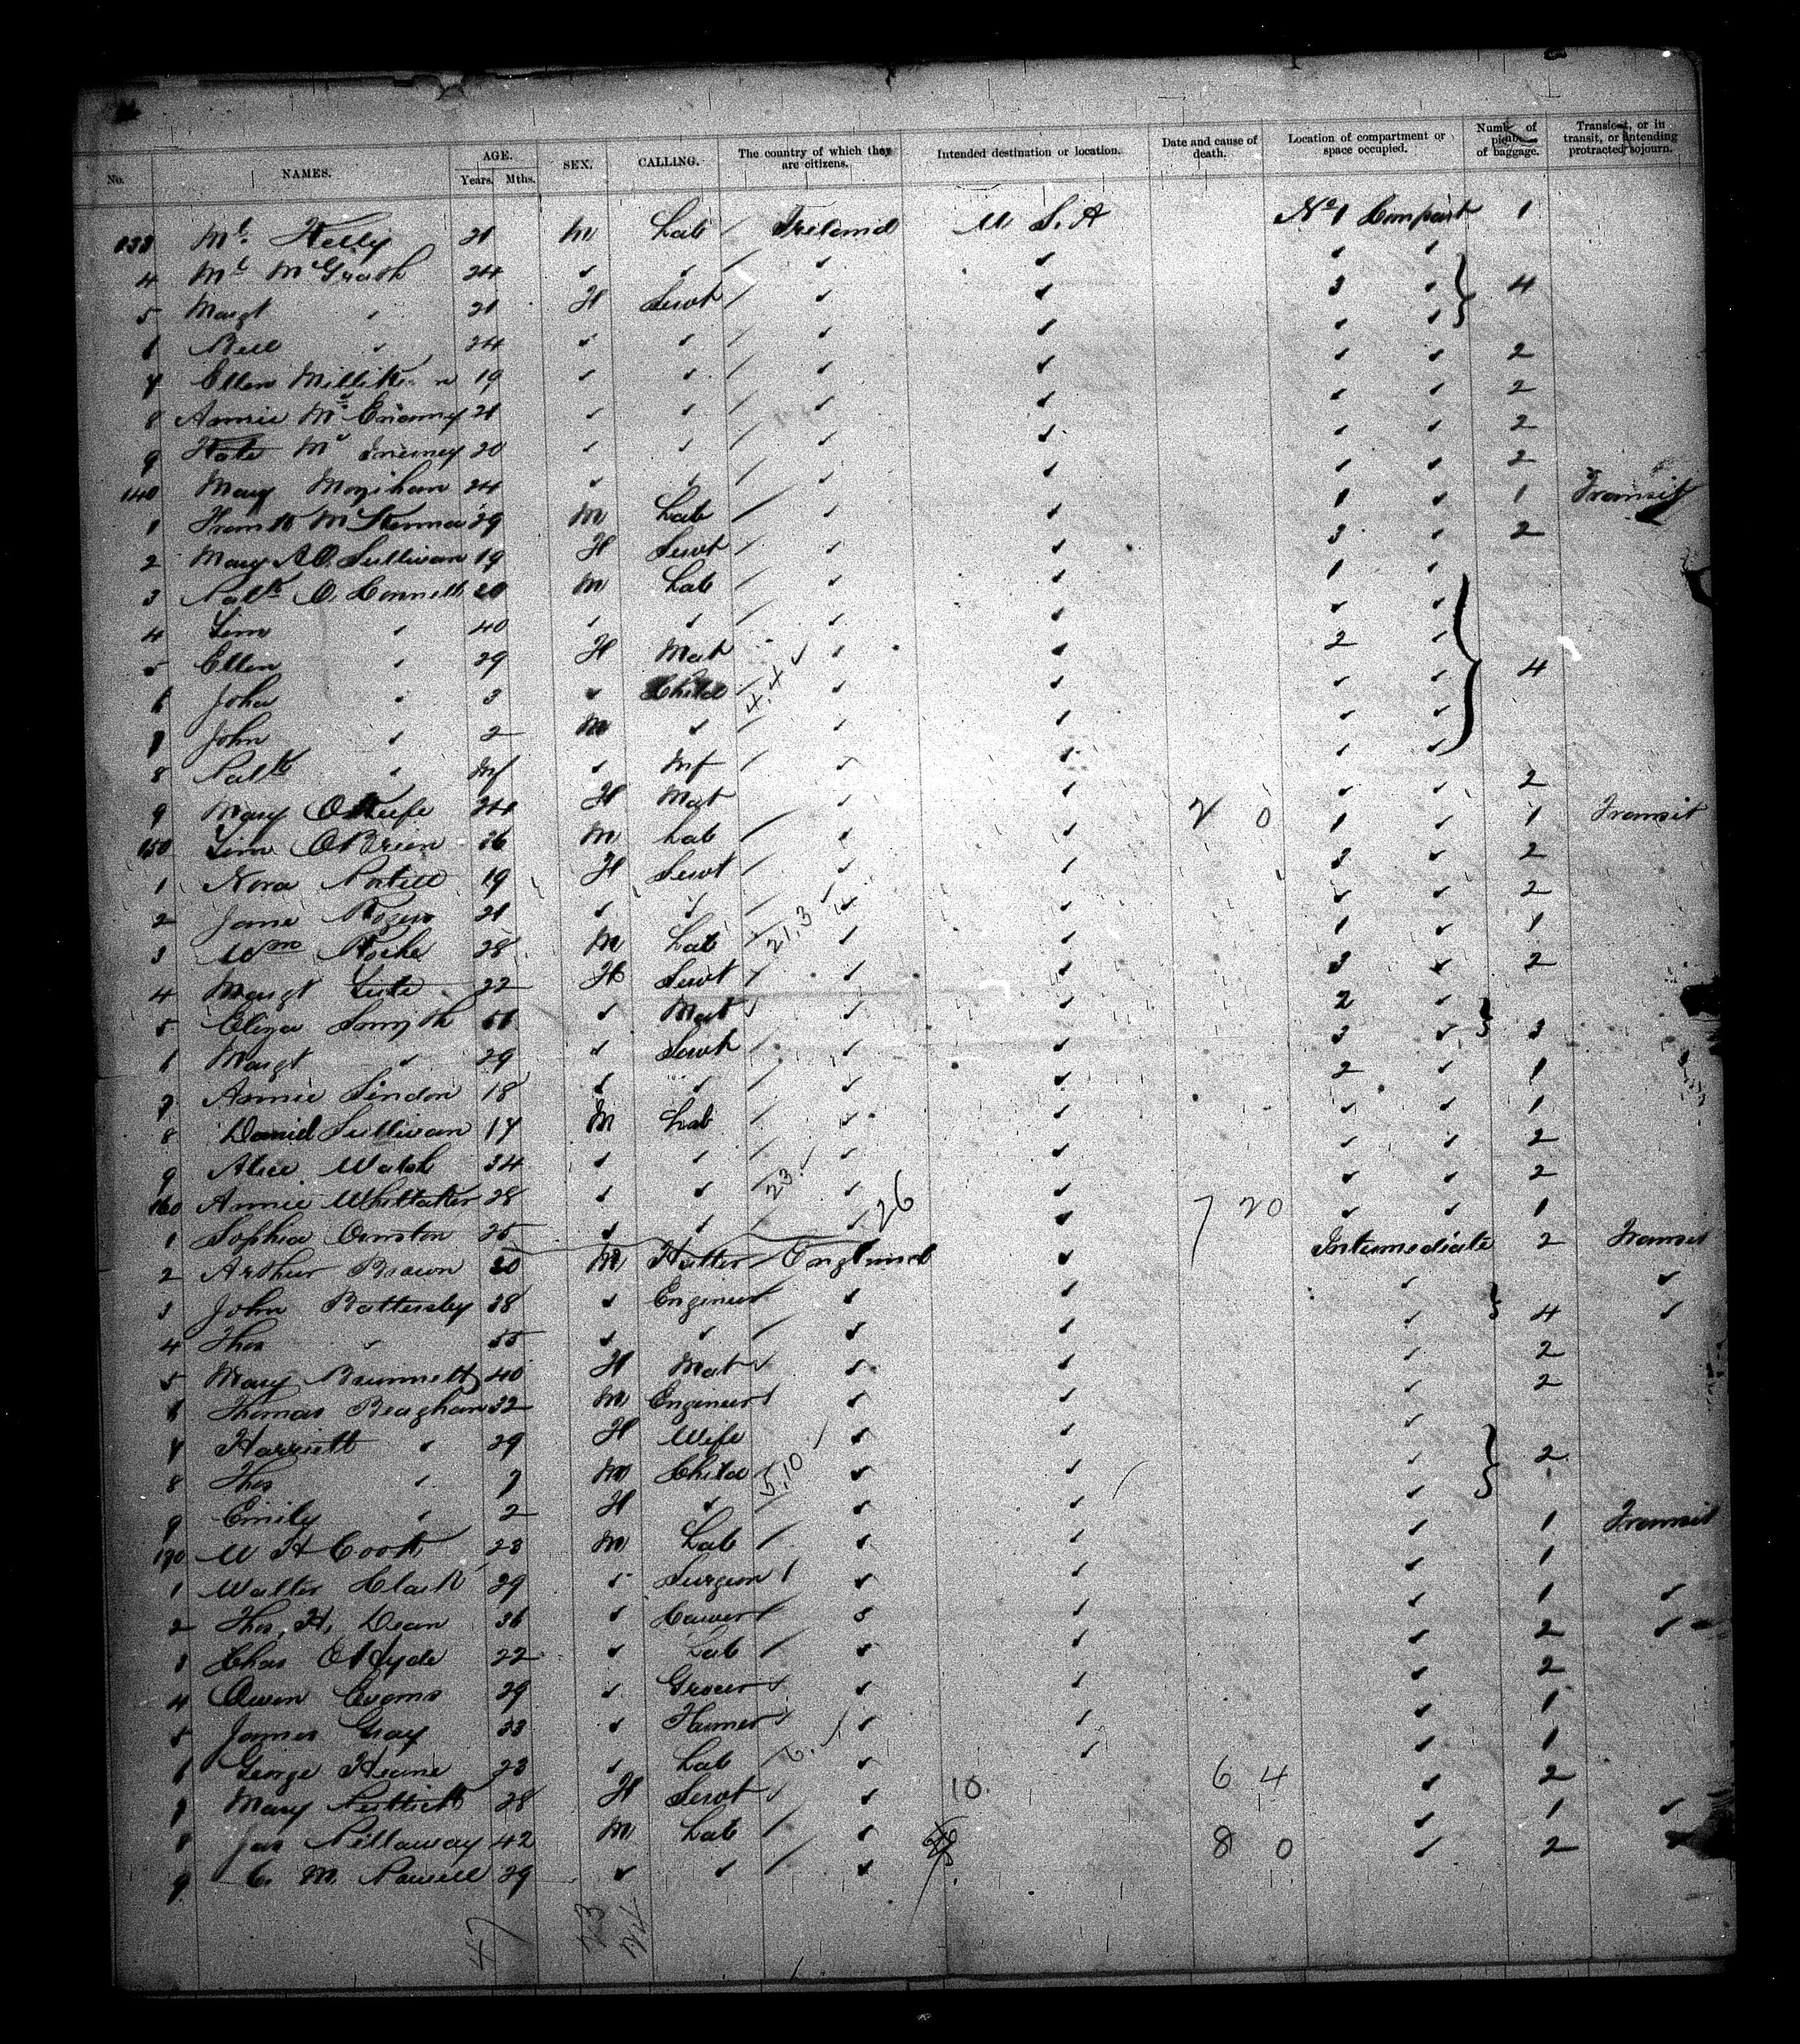 No. NAMES. AGE. Years. Mths. SEX. CALLING. The country of which they are citizens. Intended destination or location. Date and cause of death. Location of compartment or space occupied. Number of pieces of baggage. Transient, or in transit, or intending protracted sojourn.
133 Ml. Kelly 21 M Lab / Ireland U.S.A No 1 Compart 1
4 Ml McGrath 24 ✓ ✓ / ✓ ✓ ✓ ✓
5 Margt ✓ 21 F Servt / ✓ ✓ 3 ✓ } 4
6 Bell ✓ 24 ✓ ✓ / ✓ ✓ ✓ ✓
7 Ellen Milliken 19 ✓ ✓ / ✓ ✓ ✓ ✓ 2
8 Annie Mc 21 ✓ ✓ / ✓ ✓ ✓ ✓ 2
9 Kate Mc 20 ✓ ✓ / ✓ ✓ ✓ ✓ 2
140 Mary 24 ✓ ✓ / ✓ ✓ ✓ ✓ 2
1 Frank McKenna 29 M Lab / ✓ ✓ 1 ✓ 1 Transit
2 Mary A O.Sullivan 19 F Servt / ✓ ✓ 3 ✓ 2
3 Patk O.Connell 20 M Lab / ✓ ✓ 1 ✓
4 ✓ 40 ✓ ✓ / ✓ ✓ ✓ ✓
5 Ellen ✓ 29 F Mat ✓ ✓ 2 ✓ } 4
6 ✓ 3 ✓ Child / 4.4 ✓ ✓ ✓ ✓ ✓
7 John ✓ 2 M ✓ / ✓ ✓ ✓ ✓
8 Patk ✓ Inf ✓ Inf / ✓ ✓ ✓ ✓
9 Mary O'Keefe 24 F Mat ✓ ✓ ✓ ✓ 2
150 O'Brien 36 M Lab / ✓ ✓ 2 0 1 ✓ 1 Transit
1 Nora 19 F Servt / ✓ ✓ 3 ✓ 2
2 Jane Rogers 21 ✓ ✓ / ✓ ✓ ✓ ✓ 2
3 Wm Roche 28 M Lab / 21.3 ✓ ✓ ✓ 1 ✓ 1
4 Margt 22 F Servt / ✓ ✓ 3 ✓ 2
5 Eliza Smyth 51 ✓ Mat ✓ ✓ ✓ 2 ✓
6 Margt ✓ 29 ✓ Servt / ✓ ✓ 3 ✓ } 3
7 Annie Lindon 18 ✓ ✓ / ✓ ✓ 2 ✓ 1
8 Daniel Sullivan 17 M Lab / ✓ ✓ ✓ ✓ 1
9 Alice Walsh 34 ✓ ✓ / ✓ ✓ ✓ ✓ 2
160 Annie Whittaker 28 ✓ ✓ / 23. ✓ ✓ ✓ ✓ ✓ 2
1 Sophia 25 ✓ ✓ / ✓ 26 ✓ 7 20 ✓ ✓ 1
2 Arthur Brown 20 M Hatter / England ✓ Intermediate 2 Transit
3 John Battersby 38 ✓ Engineer ✓ ✓ ✓ ✓
4 Thos ✓ 55 ✓ ✓ / ✓ ✓ ✓ } 4 ✓
5 Mary Brunnett 40 F Mat ✓ ✓ ✓ ✓ 2
6 Thomas 32 M Engineer / ✓ ✓ ✓ 2
7 Harriett ✓ 29 F Wife ✓ ✓ ✓
8 Thos ✓ 7 M Child / 5.10 ✓ ✓ ✓ ✓ } 2
9 Emily ✓ 2 F ✓ / ✓ ✓ ✓
170 W H Cook 23 M Lab / ✓ ✓ ✓ 1 Transit
1 Walter Clark 29 ✓ Surgeon / ✓ ✓ 1
2 Thos. H. Dean 36 ✓ Carver / ✓ ✓ ✓ 1 ✓
3 Chas O Hyde 22 ✓ Lab / ✓ ✓ ✓ 2 ✓
4 Owen Evans 29 ✓ Grocer ✓ ✓ ✓ 2
5 James Gray 33 ✓ Farmer ✓ ✓ ✓ ✓ 1
6 George Hearne 23 ✓ Lab / 6. ✓ ✓ ✓ ✓ 1
7 Mary 28 F Servt ✓ ✓ 10. 6 4 ✓ 2
8 Jas Pillaway 42 M Lab / ✓ ✓ 1 ✓
9 C. M. Powell 29 ✓ ✓ / ✓ 8 0 ✓ 2 ✓
47 23